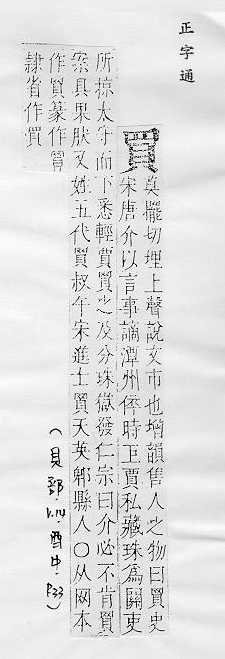 正字通
買
莫擺切埋上聲說文市也增韻售人之物曰買史
宋唐介以言事謫潭州倅時巨賈私藏珠爲關吏
所掠太守而下悉輕賈買之及分珠獄發仁宗曰介必不肯買
案具果肰又姓五代買叔午宋進士買天英縣人○从网本
作篆作
隷省作買
(貝部.V.14.酉中.P.33)